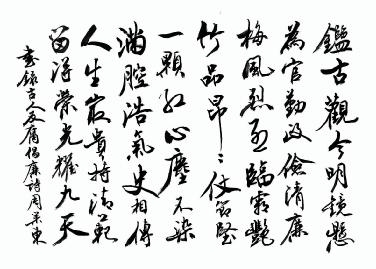 鑑古觀今明鏡懸
為官勤政儉清廉
梅風烈烈臨霜艷
竹品昂々仗節堅
一顆紅心塵不染
滿腔浩氣史相傳
人生最貴持清范
留得榮光耀九天
書錄古人反腐倡廉詩周榮東